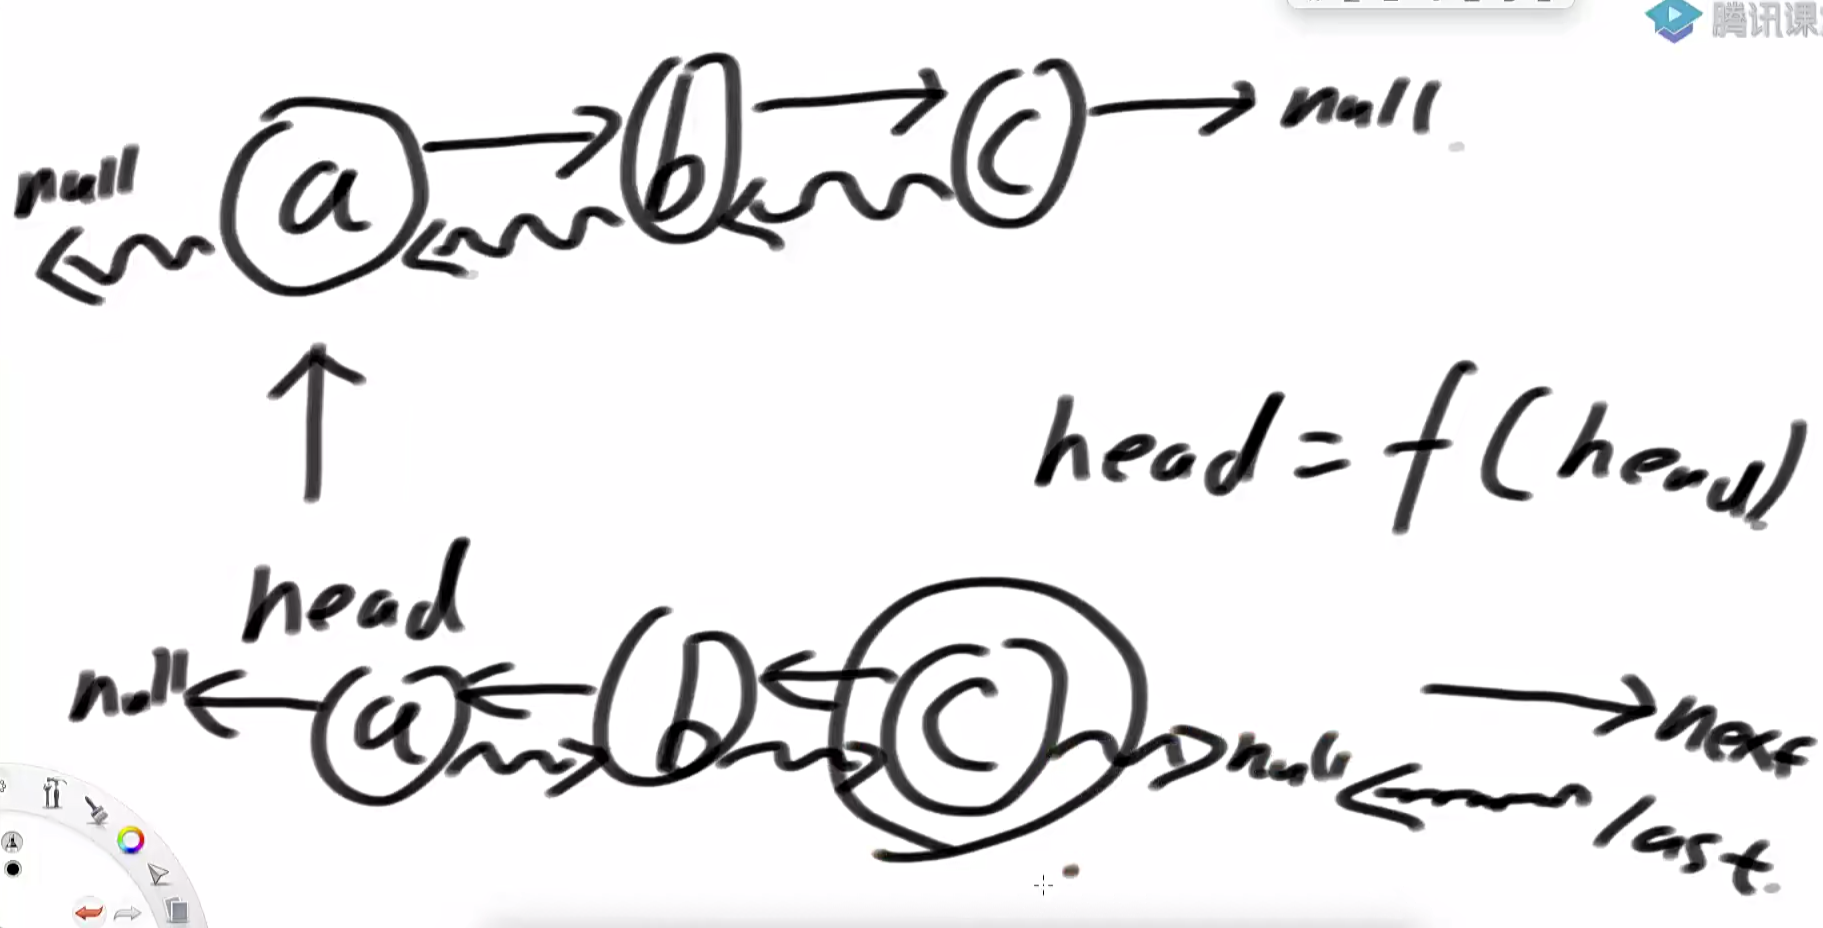 腾讯课
null a b c null
head = f(head)
head
null a b c null next
last